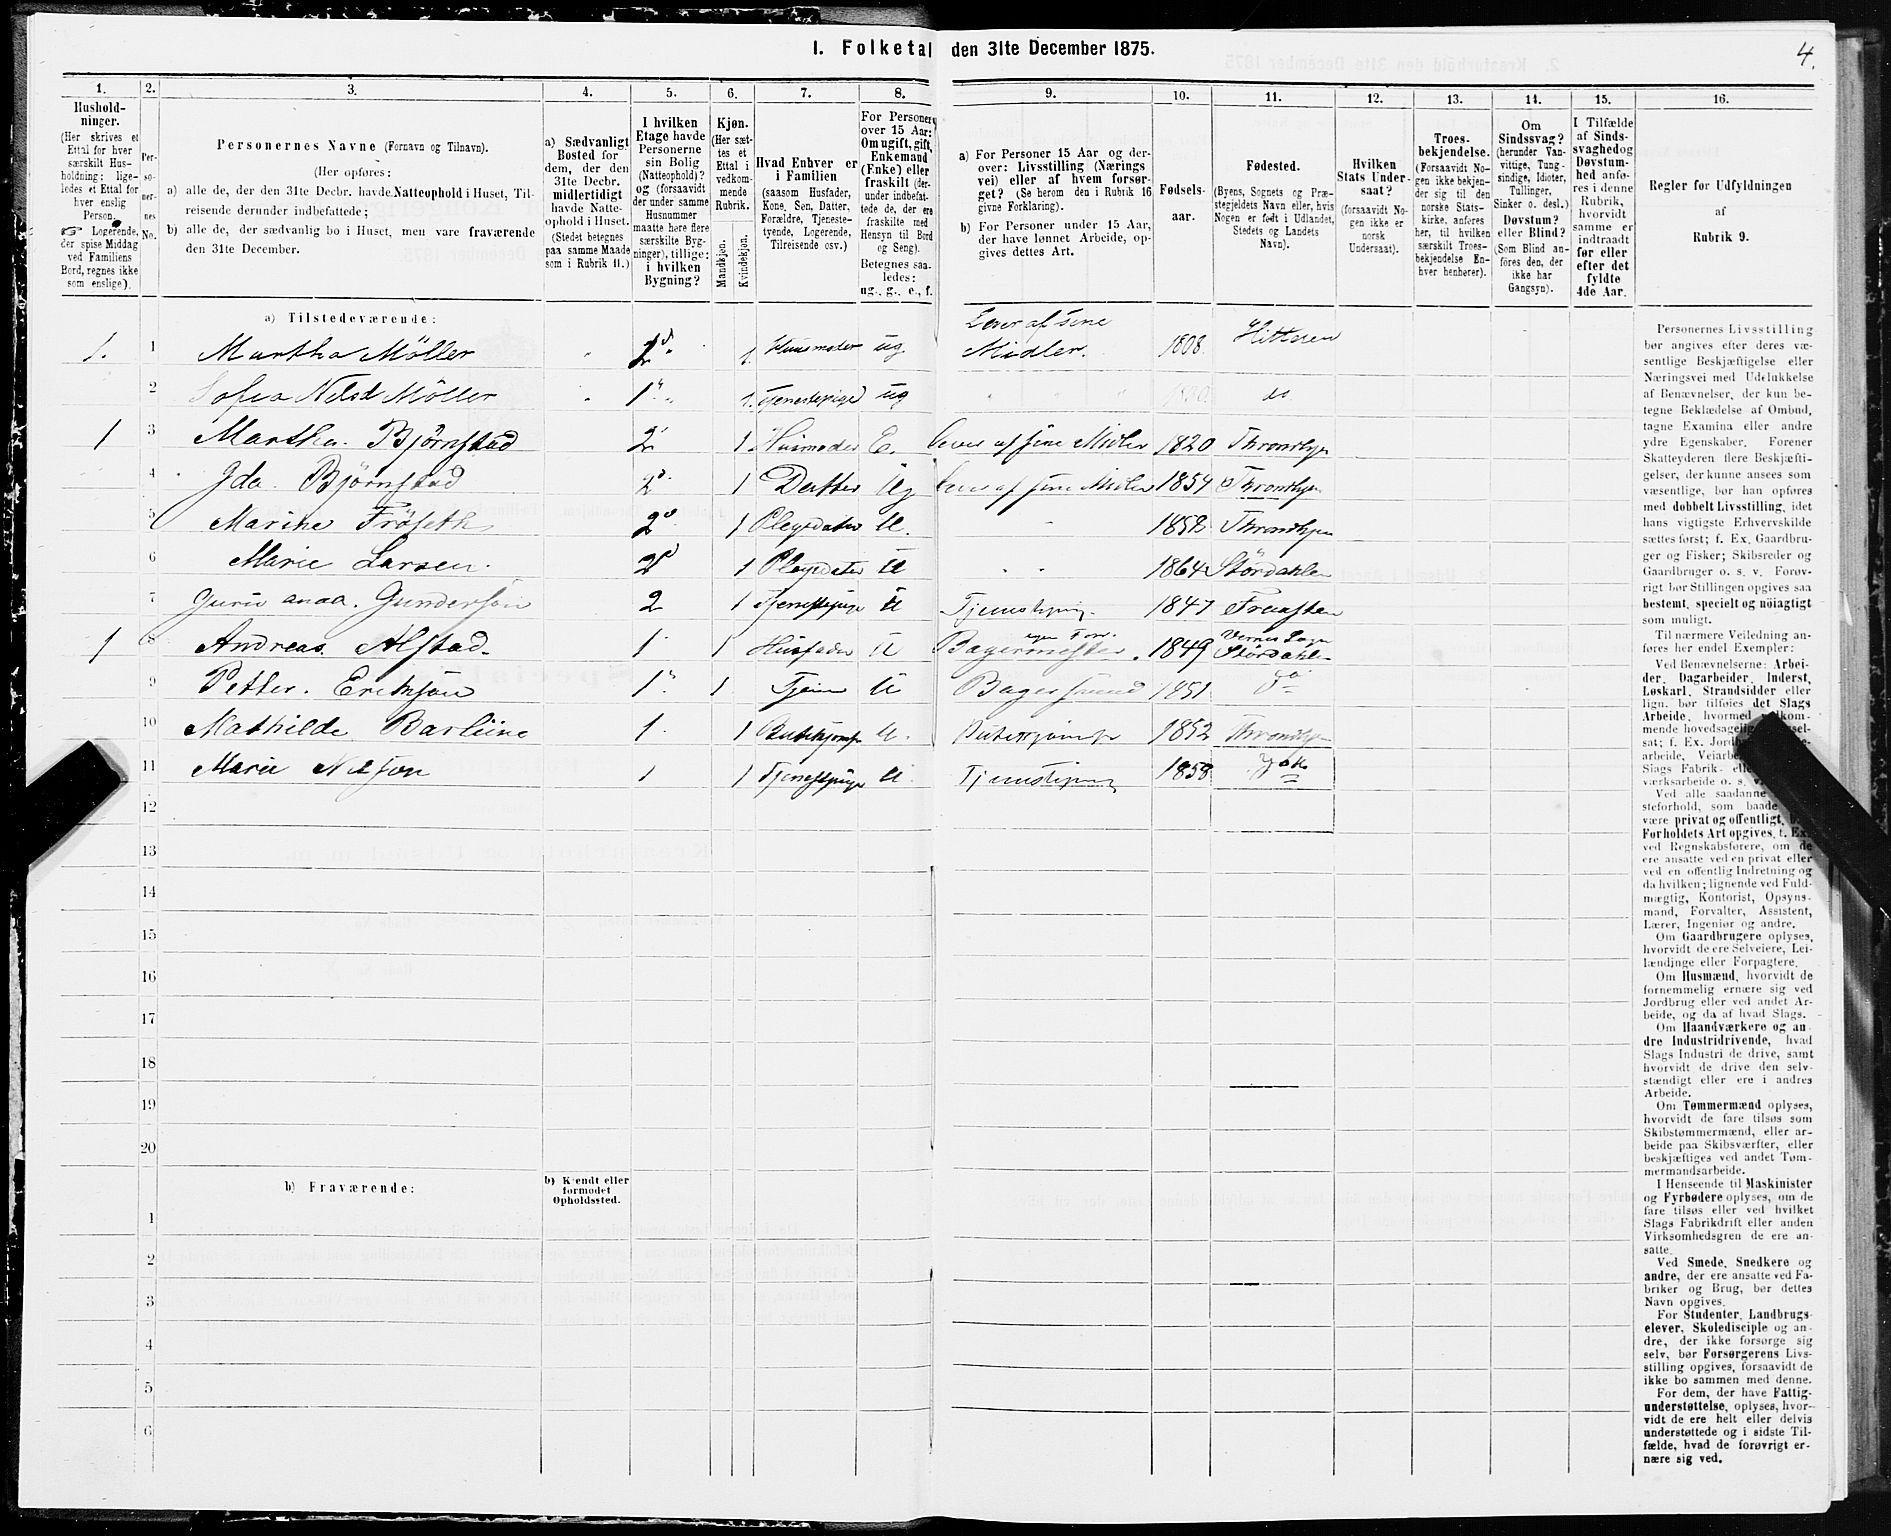 I. Folketal den 31te December 1875.
4.
1. 2. 3. 4. 5. 6. 7. 8. 9. 10. 11. 12. 13. 14. 15. 16.
Hushold-
ninger.
(Her skrives et
Ettal for hver
særskilt Hus-
holdning; lige-
ledes et Ettal for
hver enslig
Person.
☞ Logerende,
der spise Middag
ved Familiens
Bord, regnes ikke
som enslige).
Per-
so-
ner-
nes
No.
Personernes Navne (Fornavn og Tilnavn).
(Her opføres:
a) alle de, der den 31te Decbr. havde Natteophold i Huset, Til-
reisende derunder indbefattede;
b) alle de, der sædvanlig bo i Huset, men vare fraværende
den 31te December.
a) Sædvanligt
Bosted for
dem, der den
31te Decbr.
midlertidigt
havde Natte-
ophold i Huset.
(Stedet betegnes
paa samme Maade
som i Rubrik 11.)
I hvilken
Etage havde
Personerne
sin Bolig
(Natteophold)?
og (forsaavidt
der under samme
Husnummer
maatte høre flere
særskilte Byg-
ninger), tillige:
i hvilken
Bygning?
Kjøn.
(Her sæt-
tes et
Ettal i
vedkom-
mende
Rubrik.
Mandkjøn.
Kvindekjøn.
Hvad Enhver er
i Familien
(saasom Husfader,
Kone, Søn, Datter,
Forældre, Tjeneste-
tyende, Logerende,
Tilreisende osv.)
For Personer
over 15 Aar:
Om ugift, gift,
Enkemand
(Enke) eller
fraskilt (der-
under indbefat-
tede de, der ere
fraskilte med
Hensyn til Bord
og Seng).
Betegnes saa-
ledes:
ug., g., e., f.
a) For Personer 15 Aar og der-
over: Livsstilling (Nærings
vei) eller af hvem forsør-
get? (Se herom den i Rubrik 16
givne Forklaring).
b) For Personer under 15 Aar,
der have lønnet Arbeide, op-
gives dettes Art.
Fødsels-
aar.
Fødested.
(Byens, Sognets og Præ-
stegjeldets Navn eller, hvis
Nogen er født i Udlandet,
Stedets og Landets
Navn).
Hvilken
Stats Under-
saat?
(forsaavidt No-
gen ikke er
norsk
Undersaat).
Troes-
bekjendelse.
(Forsaavidt No-
gen ikke bekjen-
der sig til den
norske Stats-
kirke, anføres
her, til hvilken
særskilt Troes-
bekjendelse En-
hver henhører).
Om
Sindssvag?
(herunder Van-
vittige, Tung-
sindige, Idioter,
Tullinger,
Sinker o. desl.)
Døvstum?
eller Blind?
(Som Blind an-
føres den, der
ikke har
Gangsyn).
I Tilfælde
af Sinds-
svaghed og
Døvstum-
hed anfø-
res i denne
Rubrik,
hvorvidt
samme er
indtraadt
før eller
efter det
fyldte
4de Aar.
Regler for Udfyldningen
af
Rubrik 9.
a) Tilstedeværende:
1. 1 Martha Møller 2 1. Huusmoder ug Lever af sine Midler. 1808. Hitteren
2 Sofia Nilsd Møller 1 1. Tjenestepige ug do
1 3 Martha Bjørnstad 2 1 Husmoder E. lever af sine Midler 1820 Throndhjem
4 Ida Bjørnstad 2 1 Datter Ug lever af sine Midler 1854 Throndhjem
5 Marine Frøseth 2 1 Plegedatter U. " 1858 Throndhjem
6 Marie Larsen. 2 1 Plegedatter U " 1864 Størdahlen
7 Guru Gunderson 2 1 Tjenestepige U Tjenestepige 1847 Frausten
1 8 Andreas Alstad. 1 1 Husfader U Bagermester. 1849 Størdahlen
9 Petter Erikson 1 1 Tjener U Bagersvend 1851 Do
10 Mathilde Barliine 1 1 Butikjomfr U. Butikjomfr 1852 Throndhjem
11 Marie Nilson 1 1 Tjenestepige U. Tjenestepige 1858
12
13
14
15
16
17
18
19
20
b) Fraværende:
b) Kjendt eller
formodet
Opholdssted.
1
2
3
4
5
6
Personernes Livsstilling
bør angives efter deres væ-
sentlige Beskjæftigelse eller
Næringsvei med Udelukkelse
af Benævnelser, der kun be-
tegne Beklædelse af Ombud,
tagne Examina eller andre
ydre Egenskaber. Forener
Skatteyderen flere Beskjæfti-
gelser, der kunne ansees som
væsentlige, bør han opføres
med dobbelt Livsstilling, idet
hans vigtigste Erhvervskilde
sættes først; f. Ex. Gaardbru-
ger og Fisker; Skibsreder og
Gaardbruger o. s. v. Forøv-
rigt bør Stillingen opgives saa
bestemt, specielt og nøiagtigt
som muligt.
Til nærmere Veiledning an-
føres her endel Exempler:
Ved Benævnelserne: Arbei-
der, Dagarbeider, Inderst,
Løskarl, Strandsidder eller
lign. bør tilføies det Slags
Arbeide, hvormed
mende hovedsagelig
sat; f. Ex.
arbeide,
Slags Fabrik-
værksarbeide o. s. v.
Ved alle saadanne
steforhold, som baade
være privat og offentligt,
Forholdets Art opgives, t. Ex.
ved Regnskabsførere, om de
ere ansatte ved en privat eller
ved en offentlig Indretning og
da hvilken; lignende ved Fuld-
mægtig, Kontorist, Opsyns-
mand, Forvalter, Assistent,
Lærer, Ingeniør og andre.
Om Gaardbrugere oplyses,
hvorvidt de ere Selveiere, Lei-
lændinge eller Forpagtere.
Om Husmænd, hvorvidt de
fornemmelig ernære sig ved
Jordbrug eller ved andet Ar-
beide, og da af hvad Slags.
Om Haandværkere og an
dre Industridrivende, hvad
Slags Industri de drive, samt
hvorvidt de drive den selv-
stændigt eller ere i andres
Arbeide.
Om Tømmermænd oplyses,
hvorvidt de fare tilsøs som
Skibstømmermænd, eller ar-
beide paa Skibsværfter, eller
beskjæftiges ved andet Tøm-
mermandsarbeide.
I Henseende til Maskinister
og Fyrbødere oplyses, om de
fare tilsøs eller ved hvilket
Slags Fabrikdrift eller anden
Virksomhedsgren de ere an-
satte.
Ved Smede, Snedkere og
andre, der ere ansatte ved Fa-
briker og Brug, bør dettes
Navn opgives.
For Studenter, Landbrugs-
elever, Skoledisciple og an-
dre, der ikke forsørge sig
selv, bør Forsørgerens Livs-
stilling opgives, forsaavidt de
ikke bo sammen med denne.
For dem, der have Fattig-
understøttelse, oplyses, hvor-
vidt de ere helt eller delvis
understøttede og i sidste Til-
fælde, hvad de forøvrigt er-
nære sig ved.